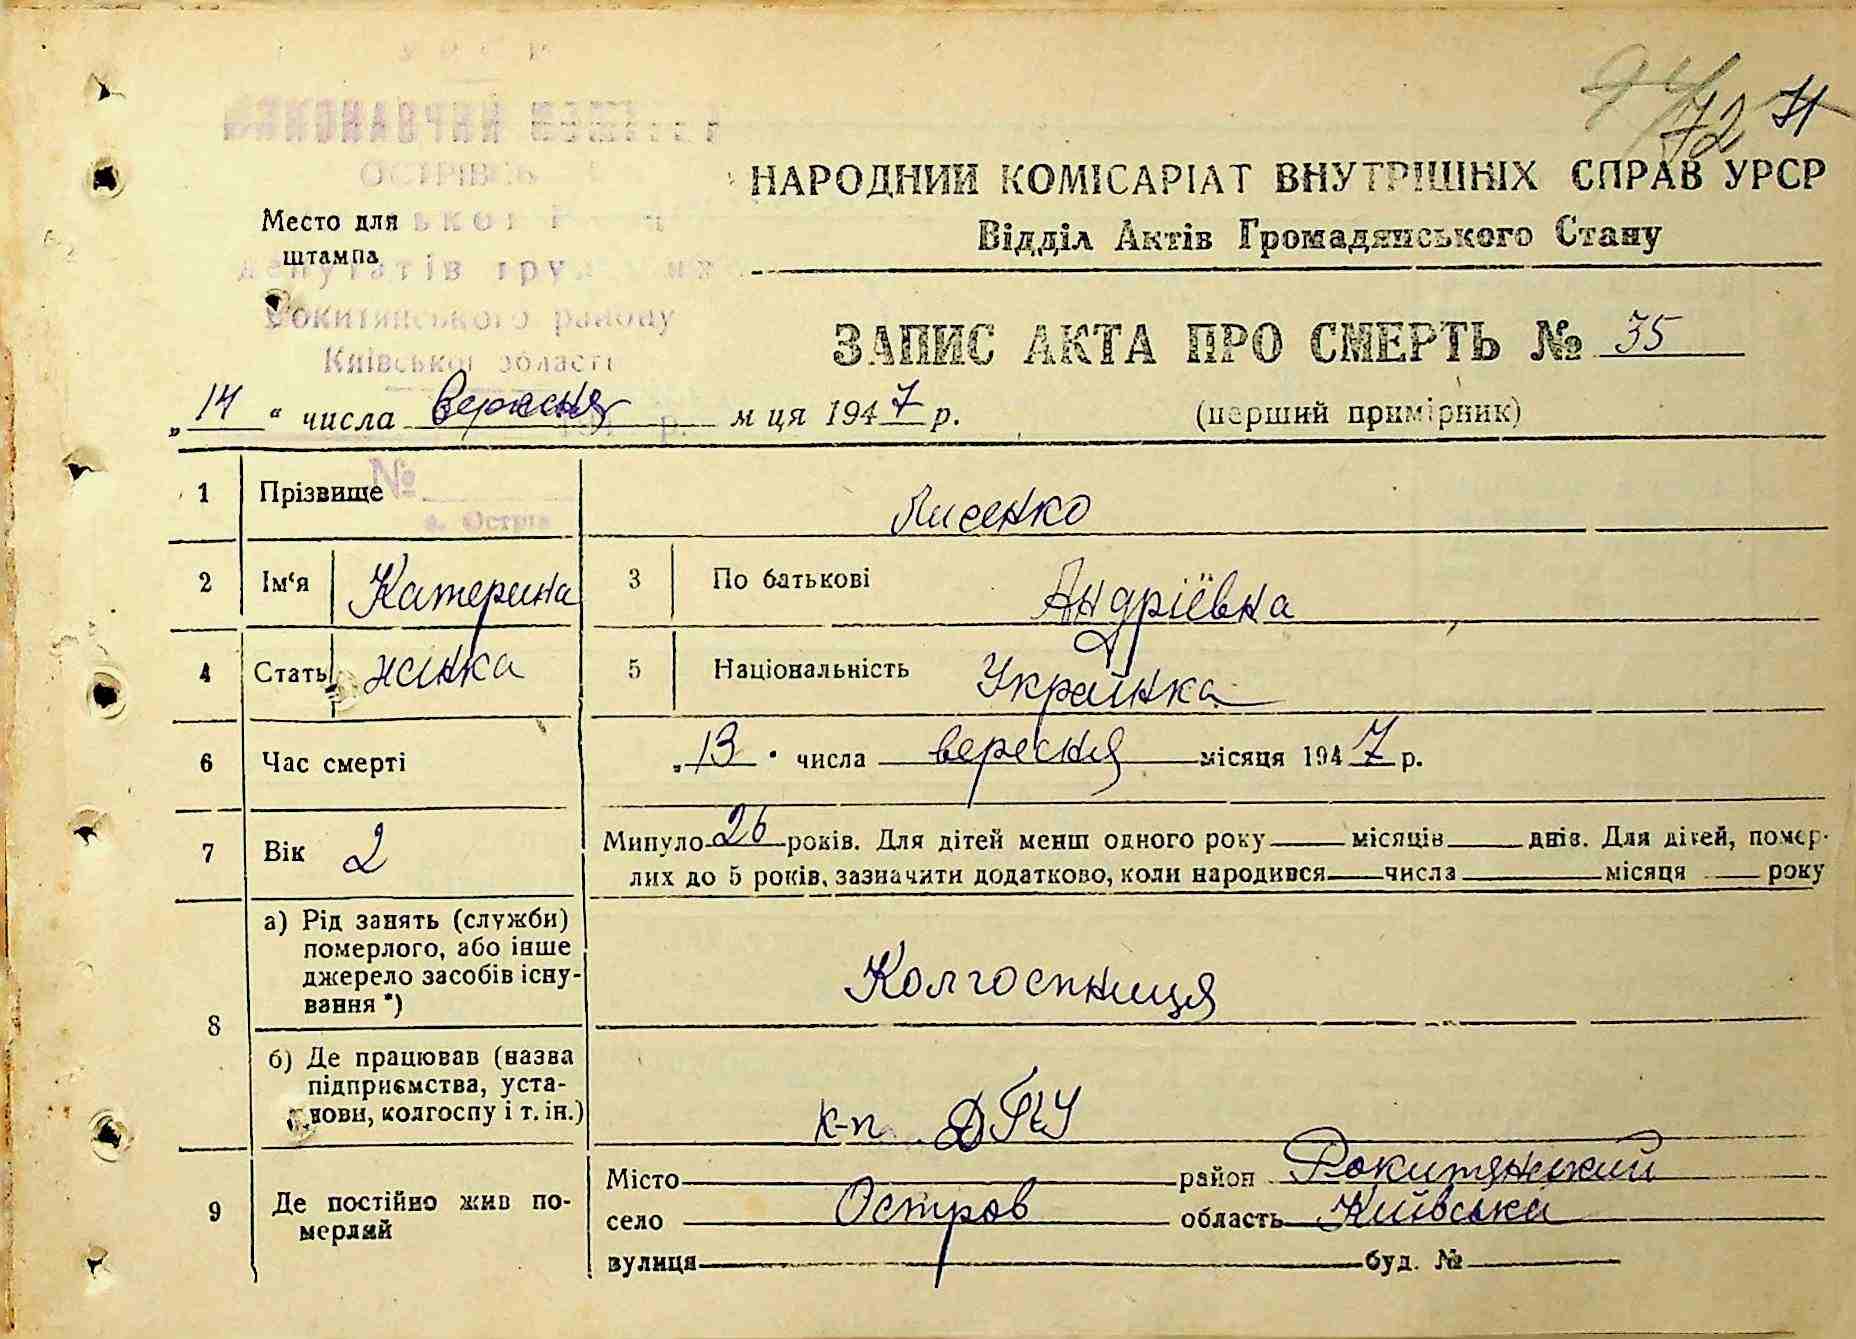 УРСР
ВИКОНАВЧИЙ КОМІТЕТ
ОСТРІВСЬКОЇ
депутатів трудящих
Рокитянського району
Київської області
№
с. Острів
Место для
штампа
72
НАРОДНИЙ КОМІСАРІАТ ВНУТРІШНІХ СПРАВ УРСР
Відділ Актів Громадянського Стану
ЗАПИС АКТА ПРО СМЕРТЬ № 35
„14“ числа вересня м ця 1947 р. (перший примірник)
1 Прізвище Лисенко
2 Ім‘я Катерина 3 По батькові Андріївна
4 Стать жінка 5 Національність Українка
6 Час смерті „13" числа вересня місяця 1947 р.
7 Вік 2 Минуло 26 років. Для дітей менш одного року місяців днів. Для дітей, помер-
лих до 5 років, зазначити додатково, коли народився числа місяця року
8 а) Рід занять (служби)
померлого, або інше
джерело засобів існу-
вання *)
Колгоспниця
б) Де працював (назва
підприємства, уста-
нови, колгоспу і т. ін.)
к-п ДПУ
9 Де постійно жив по-
мерлий
Місто район Рокитянський
село Остров область Київська
вулиця буд. №